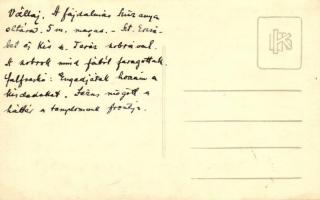 Vállaj. A fájdalmas Szűz anya
oltára. 5 m. magas. - Szt. Erzsé-
bet és Kis sz. Teréz szobrával.
A szobrok mind fából faragottak.
Falfreskó: Engedjétek hozzám a
kisdedeket. Jézus mögött a
háttér a templomunk frontja.